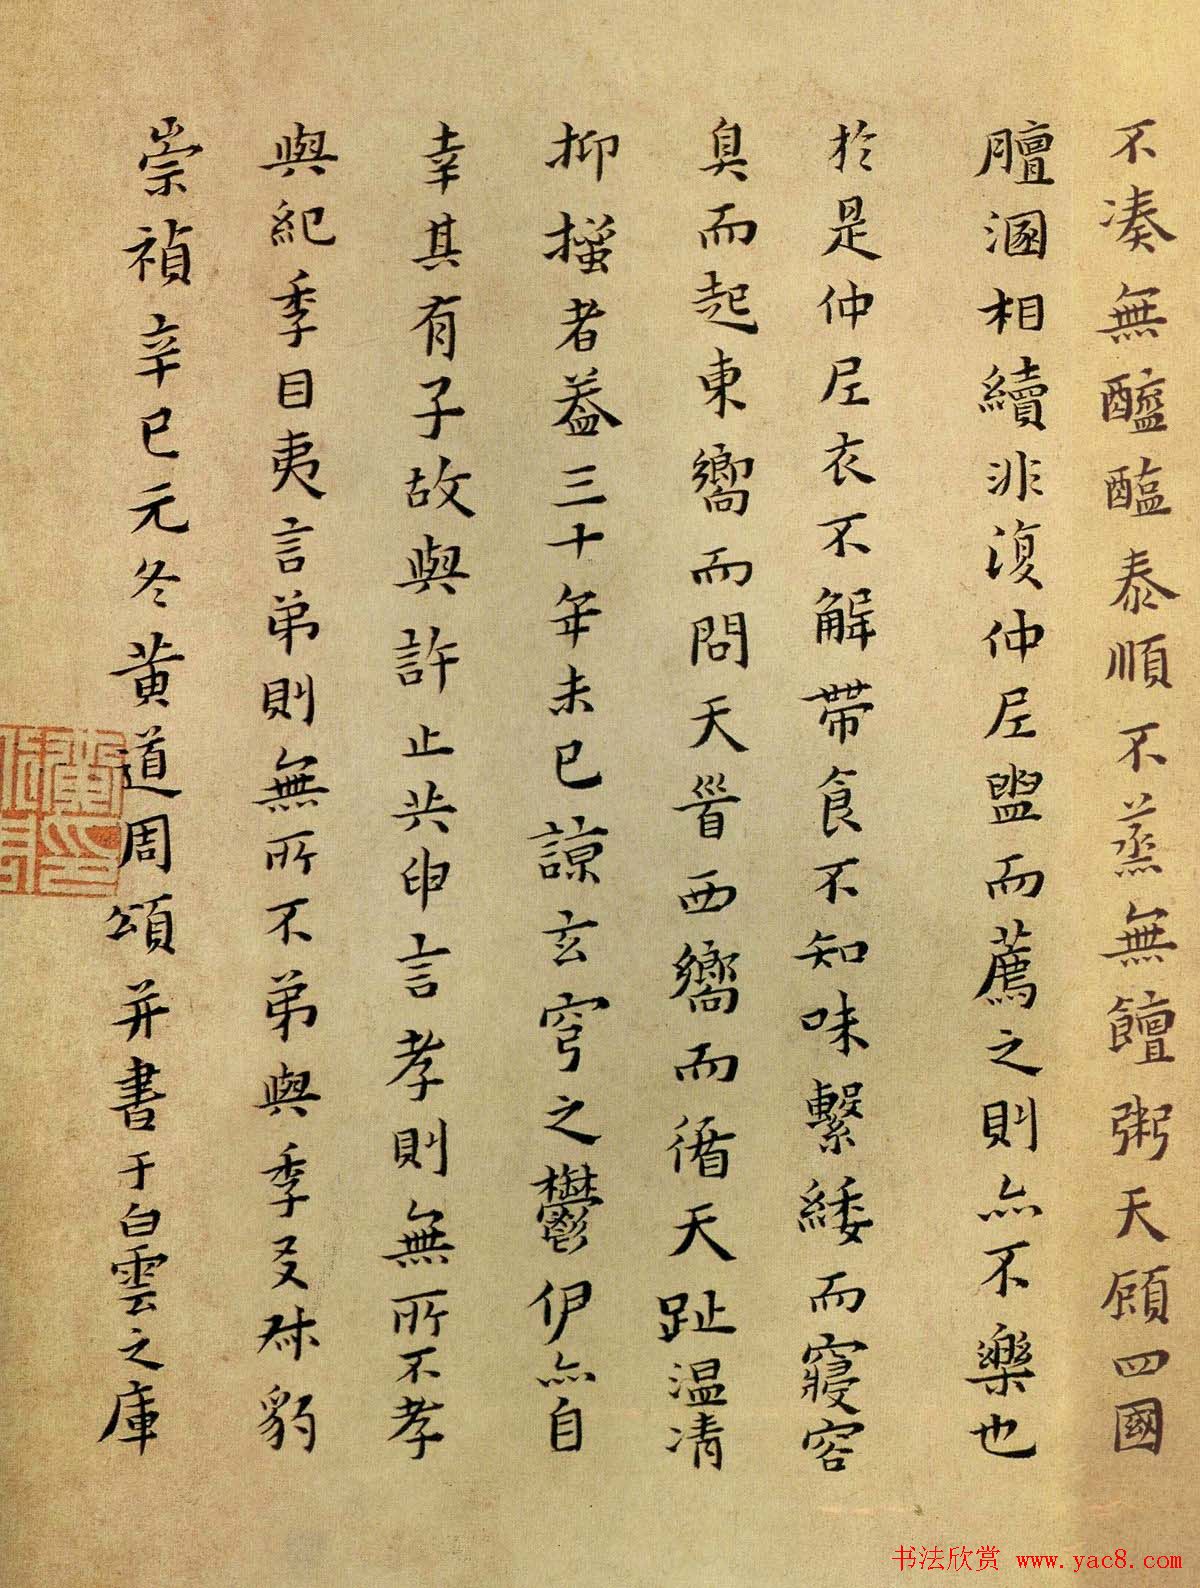 不凑無醯醢泰順不蒸無饘粥天顧四國
膻溷相續非復仲尼盥而薦之則亦不樂也
於是仲尼衣不解帶食不知味繫緌而寢容
臭而起東嚮而問天晉西嚮而循天趾温凊
抑搔者蓋三十年未已諒玄穹之鬱伊亦自
幸其有子故與許止共申言孝則無所不孝
與紀季目夷言弟則無所不弟與季友叔豹
崇禎辛巳元冬黄道周頌并書于白雲之庫
书法欣赏 www.yac8.com